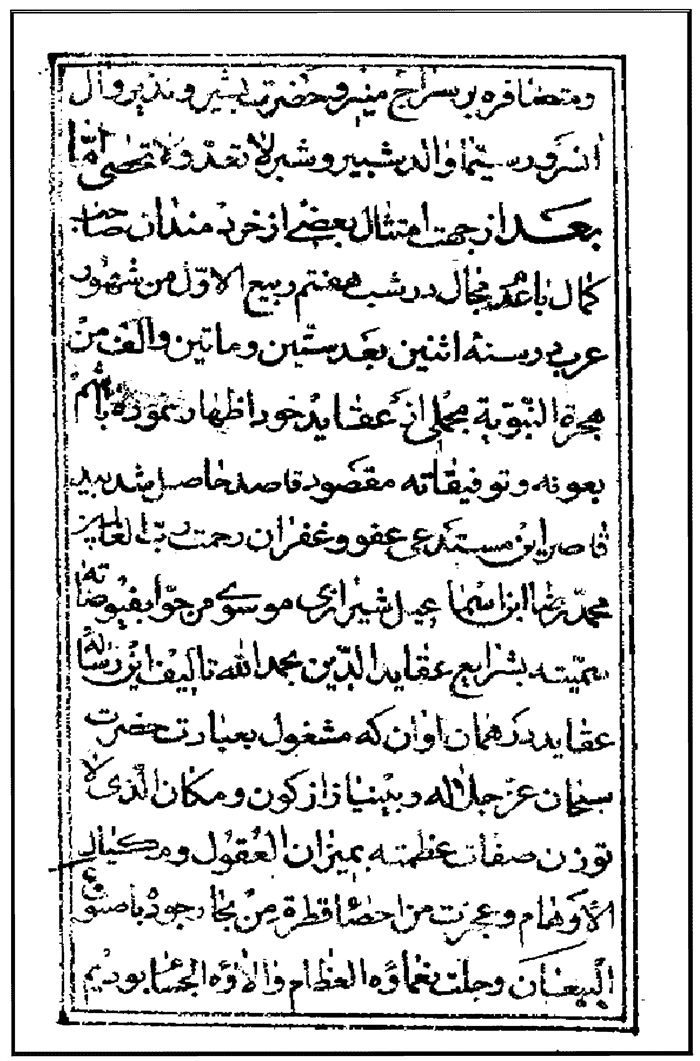 ومتضافره بر سراج منیر و حضرت بشیر و نذیر و آل
سیّما والد شبیر و شبر لا تعدّ ولا تحصی امّا
بعد از جهت امتثال بعضی از خردمندان صاحب
کمال در شب هفتم ربیع الاوّل من شهور
عرب در سنهٔ اثنین بعد ستّین و ماتین والف من
هجرة النّبویة مجملی از عقاید خود اظهار نموده
بعونه و توفیقاته مقصود قاصد حاصل شد بید
قاصر این مستدعی عفو و غفران رحمت ربّ العالمین
محمّد رضا ابن اسماعیل شیرازی موسوی
سمّیته بشرایع عقاید الدّین بحمد الله تالیف این رساله
عقاید در همان اوان که مشغول بعبارت حضرت
سبحان عزّ جلاله و بینیاز از کون و مکان الّذی لا
توزن صفات عظمته بمیزان العقول و مکیال
الاوهام و عجزت من احصاء قطرة من بحار جوده
وجلت نعماؤه العظام والاؤه بودیم